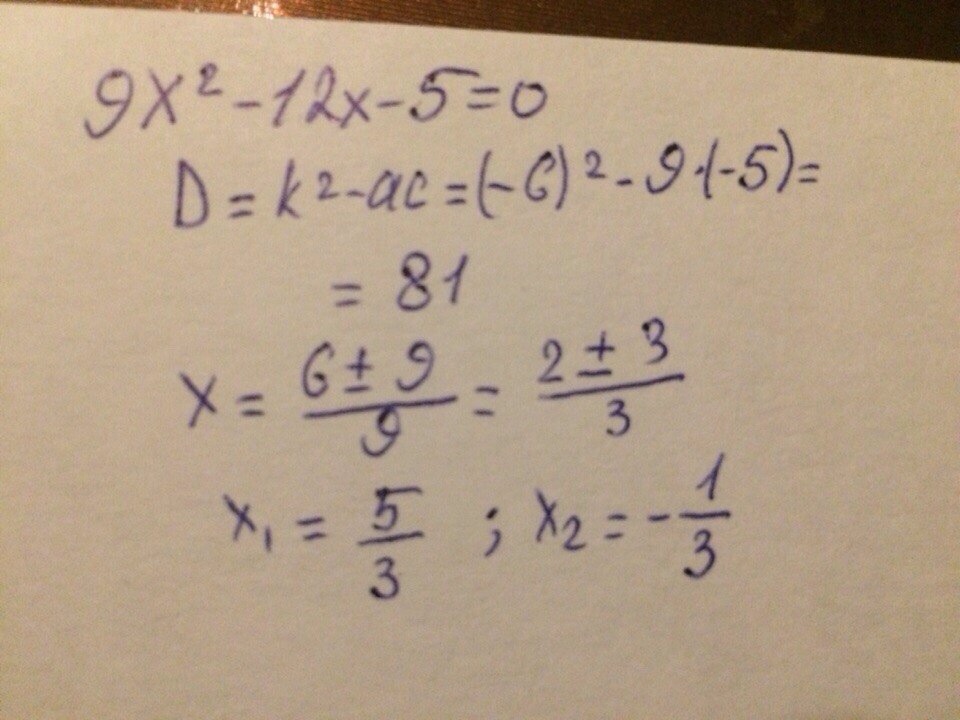 9x² - 12x - 5 = 0
D = k² - ac = (-6)² - 9·(-5) =
= 81
x = (6 ± 9)/9 = (2 ± 3)/3
x₁ = 5/3 ; x₂ = -1/3